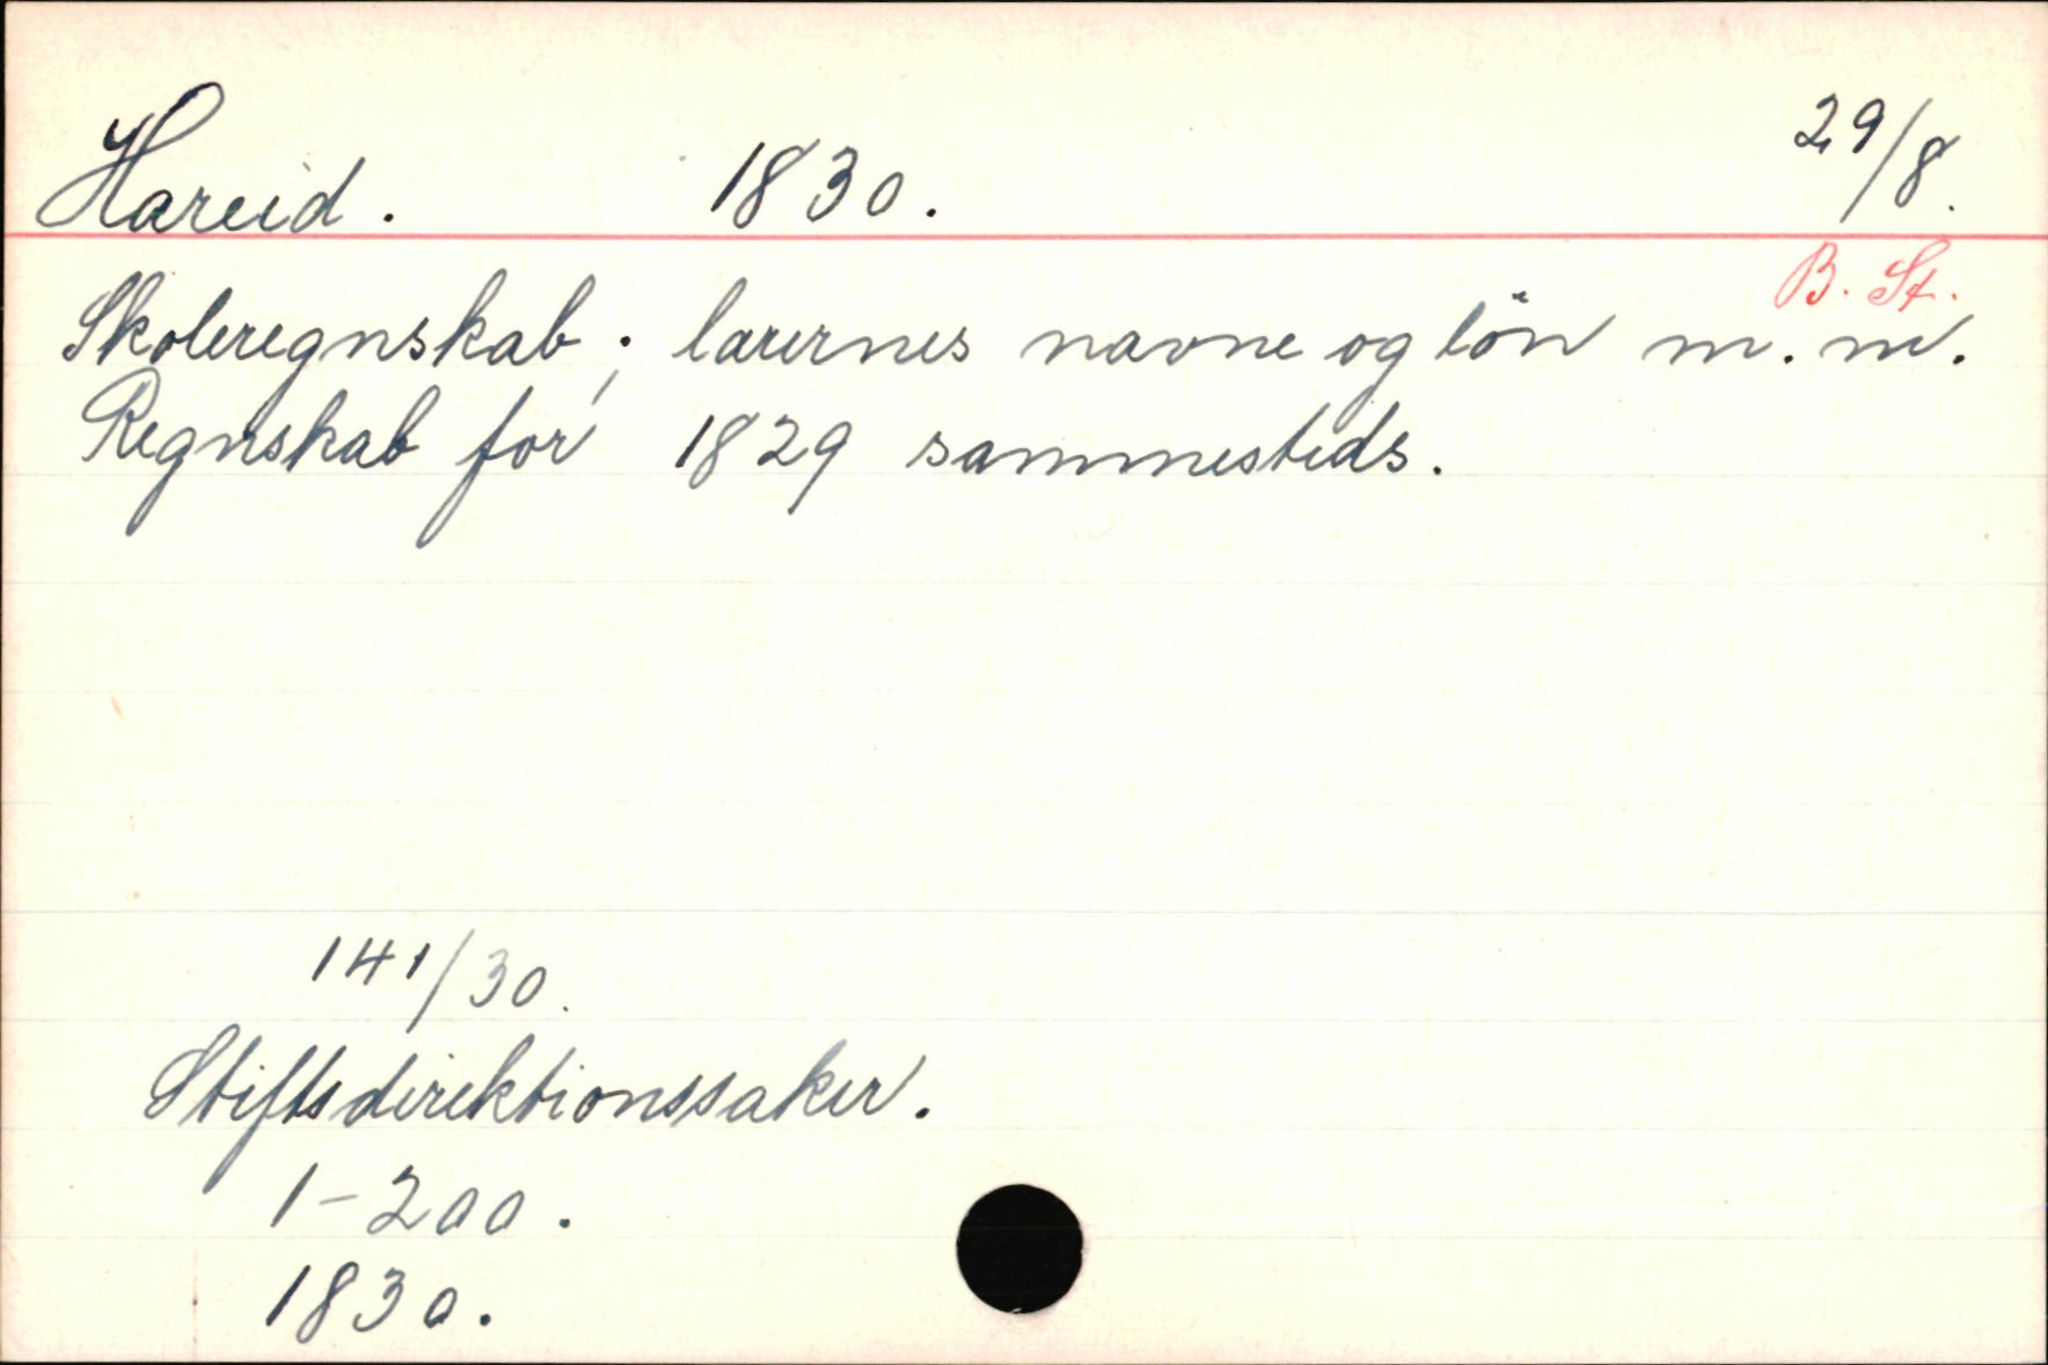 Hareid. 1830. 29/8.
B. St.
Skoleregnskab; lærernes navne og lön m. m.
Regnskab for 1829 sammesteds.
141/30.
Stiftsdirektionssaker.
1-200.
1830.